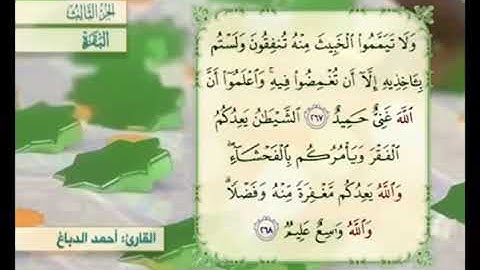 الجزء الثالث
البقرة
وَلَا تَيَمَّمُوا۟ الْخَبِيثَ مِنْهُ تُنفِقُونَ وَلَسْتُم
بِـَٔاخِذِيهِ إِلَّآ أَن تُغْمِضُوا۟ فِيهِ ۚ وَٱعْلَمُوٓا۟ أَنَّ
ٱللَّهَ غَنِىٌّ حَمِيدٌ ٢٦٧ ٱلشَّيْطَٰنُ يَعِدُكُمُ
ٱلْفَقْرَ وَيَأْمُرُكُم بِٱلْفَحْشَآءِ ۖ
وَٱللَّهُ يَعِدُكُم مَّغْفِرَةً مِّنْهُ وَفَضْلًا ۗ
وَٱللَّهُ وَٰسِعٌ عَلِيمٌ ٢٦٨
القارئ: أحمد الدباغ